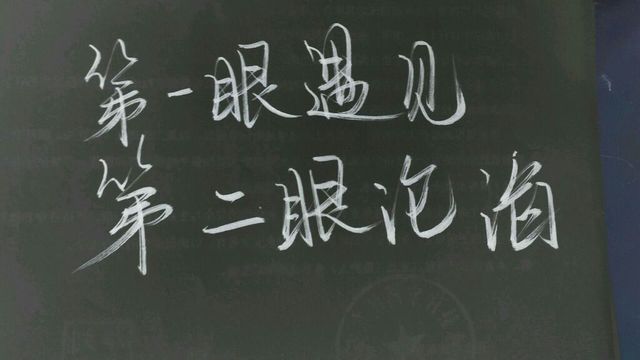 第一眼遇见
第二眼沉